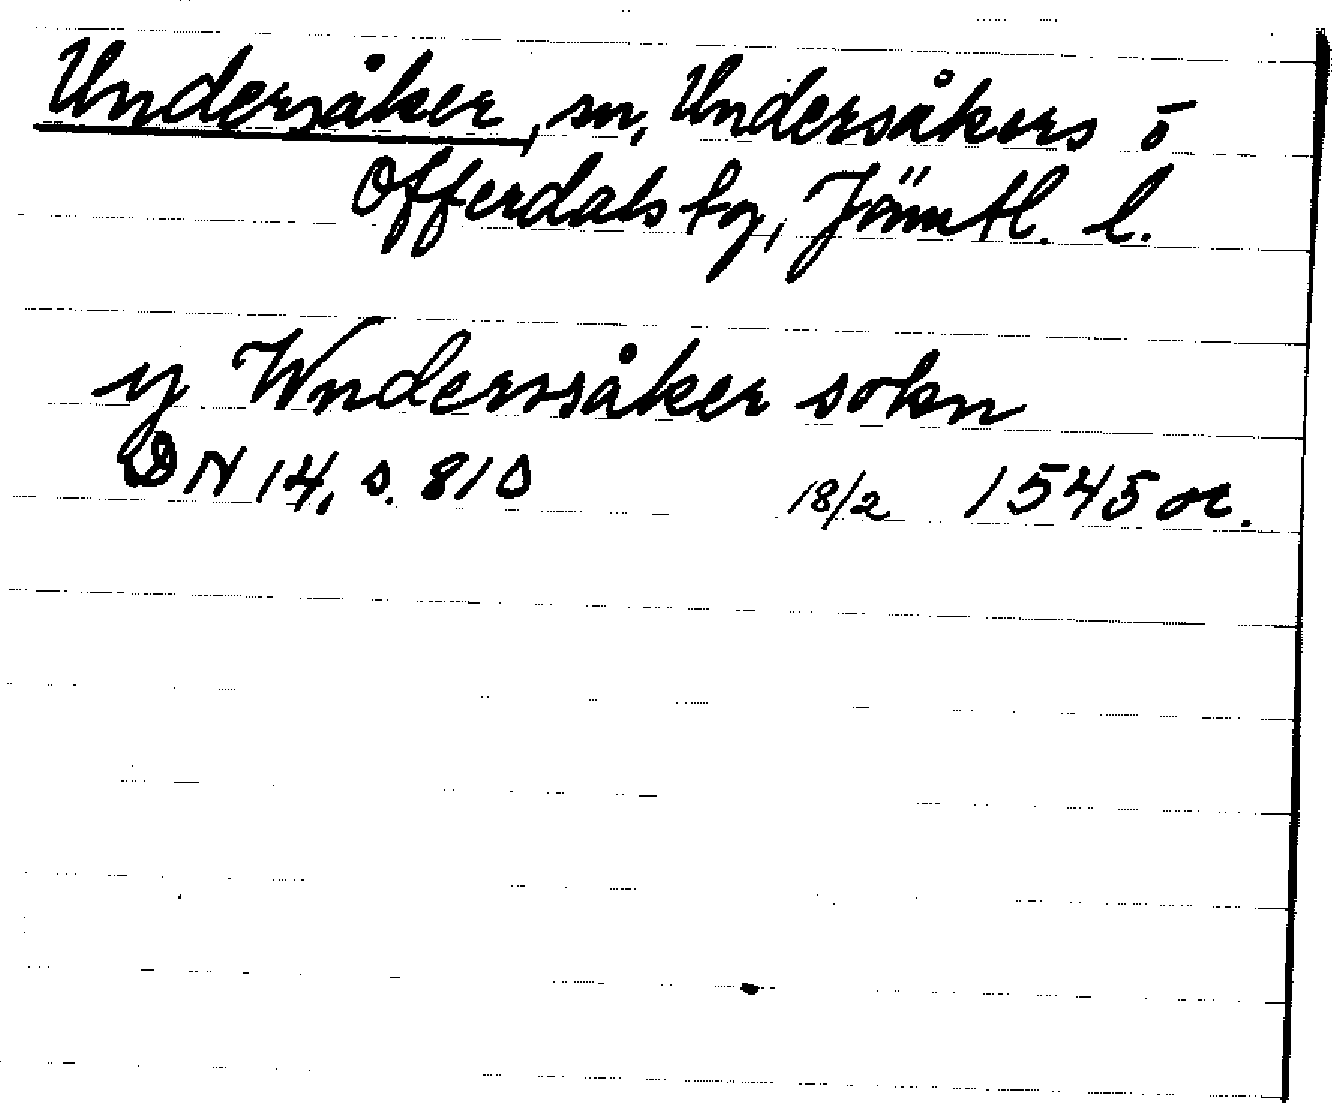 Undersåker, sn, Undersåkers o
Offerdals tg, Jämtl. l.
y Wnderssåker sokn
DN 14, s. 810 18/2 1545 or.